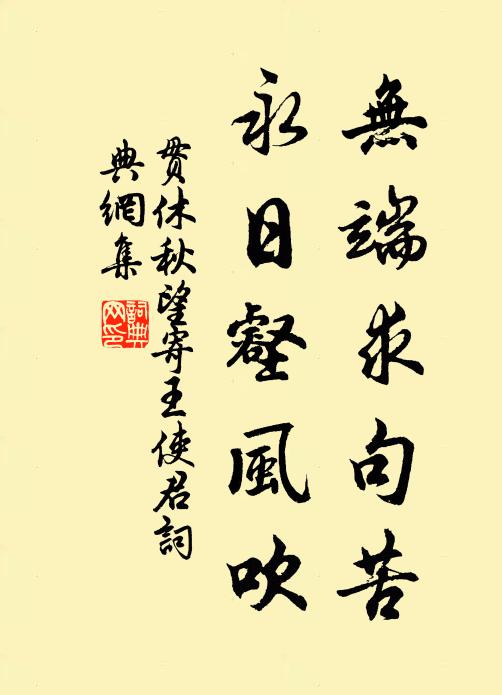 無端求句苦
永日壑風吹
貫休秋望寄王使君詞
典網集
詞典
网印